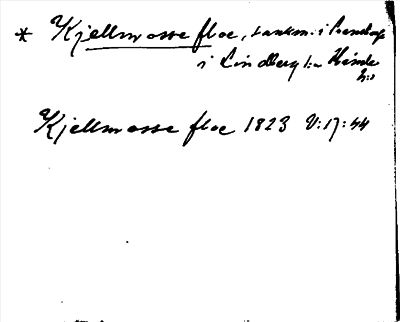 * Kjellmosse floe, sankm. i
i Lindberg sn Himle
hd
Kjellmosse floe 1823 V:17:44